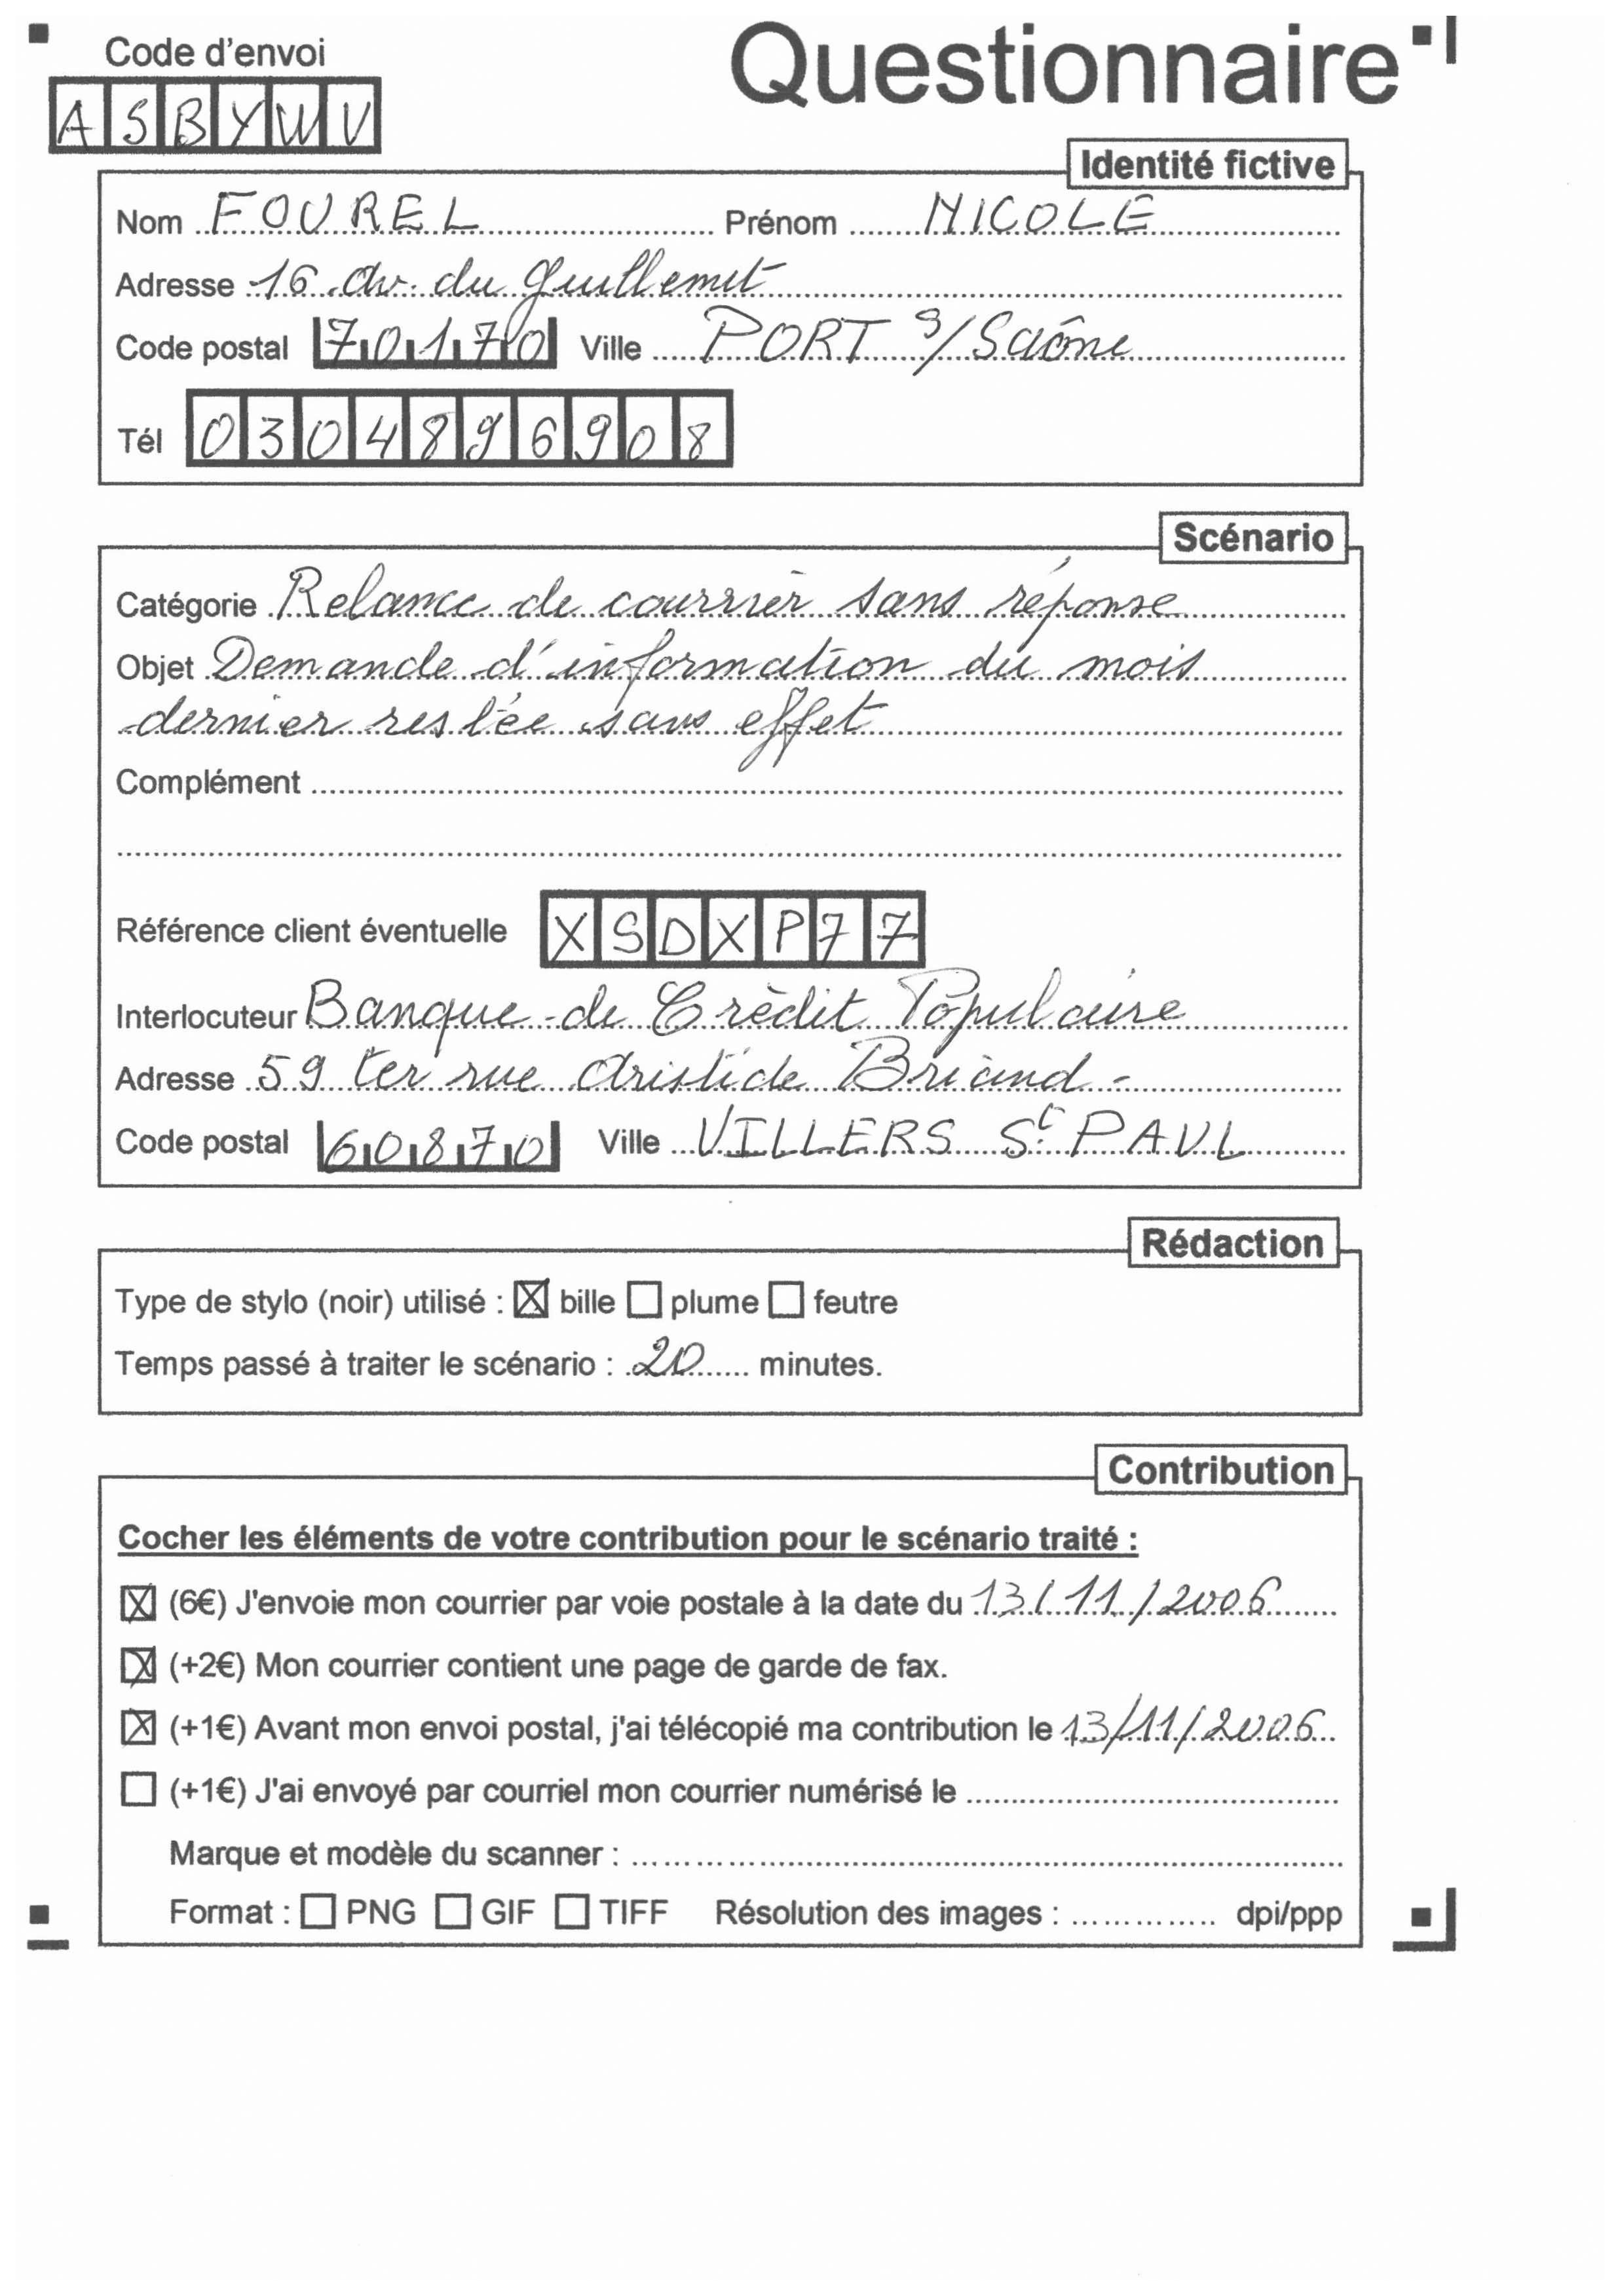 Code d'envoi
Questionnaire
ASBYWV
Identité fictive
Nom FOUREL Prénom NICOLE
Adresse 16 av. du Guillemit
Code postal 70170 Ville PORT s/Saône
Tél 0304896908
Scénario
Catégorie Relance de courrier sans réponse
Objet Demande d'information du mois
dernier restée sans effet
Complément
Référence client éventuelle XSDXP77
Interlocuteur Banque de Crédit Populaire
Adresse 59 ter rue Aristide Briand -
Code postal 60870 Ville VILLERS St PAUL
Rédaction
Type de stylo (noir) utilisé : ☒ bille ☐ plume ☐ feutre
Temps passé à traiter le scénario : 20 minutes.
Contribution
Cocher les éléments de votre contribution pour le scénario traité :
☒ (6€) J'envoie mon courrier par voie postale à la date du 13/11/2006
☒ (+2€) Mon courrier contient une page de garde de fax.
☒ (+1€) Avant mon envoi postal, j'ai télécopié ma contribution le 13/11/2006
☐ (+1€) J'ai envoyé par courriel mon courrier numérisé le
Marque et modèle du scanner :
Format : ☐ PNG ☐ GIF ☐ TIFF Résolution des images : dpi/ppp